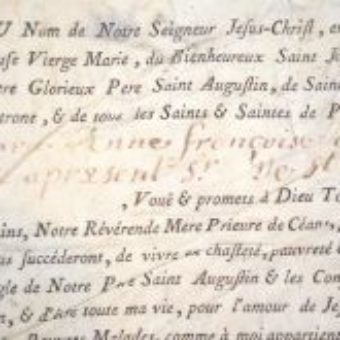 U Nom de Notre Seigneur Jesus-Christ, e
use Vierge Marie, du Bienheureux Saint J
re Glorieux Pere Saint Augustin, de Sain
trone, & de tous les Saints & Saintes de P
Anne françoise
apresent Sr De St
, Voué & promets à Dieu To
ins, Notre Révérende Mere Prieure de Céans,
us succéderont, de vivre en chasteté, pauvreté
gle de Notre Pere Saint Augustin & les Con
n, & d'être toute ma vie, pour l'amour de Je
Pauvres Malades, comme à moi appartient